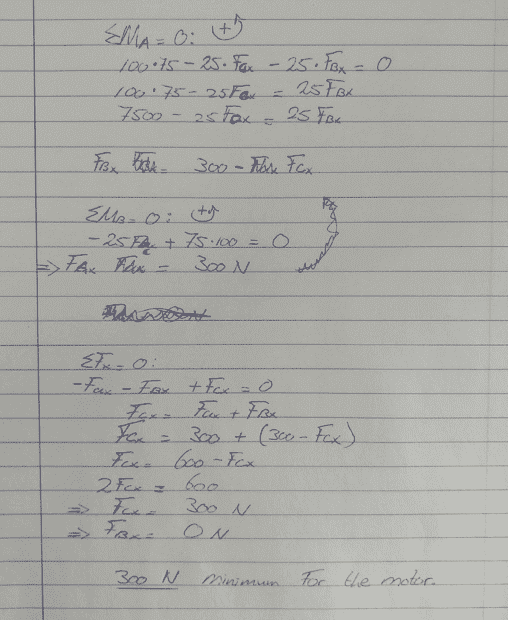 ΣMA = 0: (+↺
100·75 − 25·Fcx − 25·FBx = 0
100·75 − 25Fcx = 25FBx
7500 − 25Fcx = 25FBx
FBx = 300 − Fcx
ΣMB = 0: (+↺
−25FAx + 75·100 = 0
⇒ FAx = 300 N
ΣFx = 0:
−Fax − FBx + Fcx = 0
Fcx = Fax + FBx
Fcx = 300 + (300 − Fcx)
Fcx = 600 − Fcx
2Fcx = 600
⇒ Fcx = 300 N
⇒ FBx = 0 N
300 N minimum for the motor.